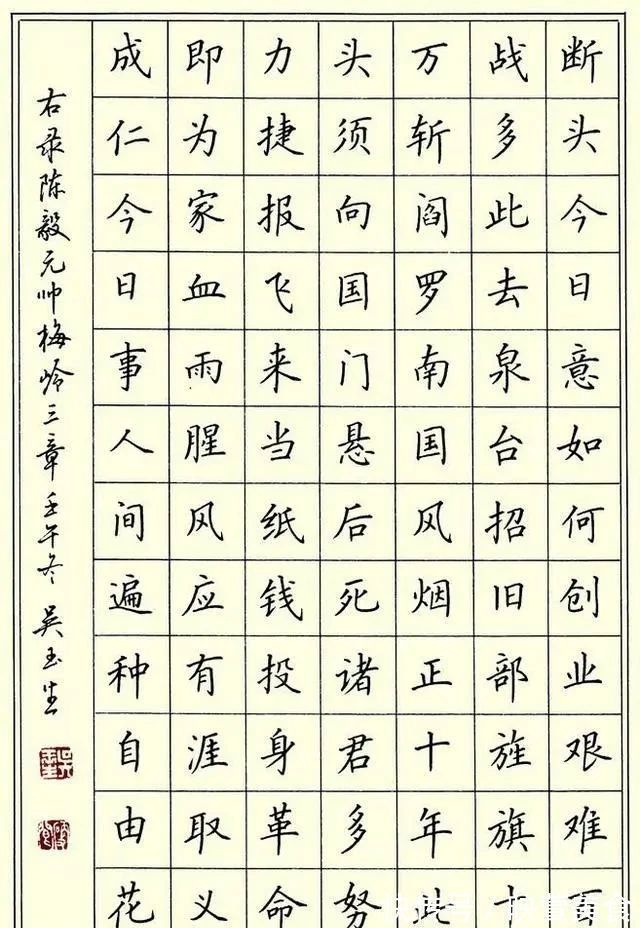 断头今日意如何创业艰难百
战多此去泉台招旧部旌旗十
万斩阎罗南国风烟正十年此
头须向国门悬后死诸君多努
力捷报飞来当纸钱投身革命
即为家血雨腥风应有涯取义
成仁今日事人间遍种自由花
右录陈毅元帅梅岭三章壬午冬 吴玉生